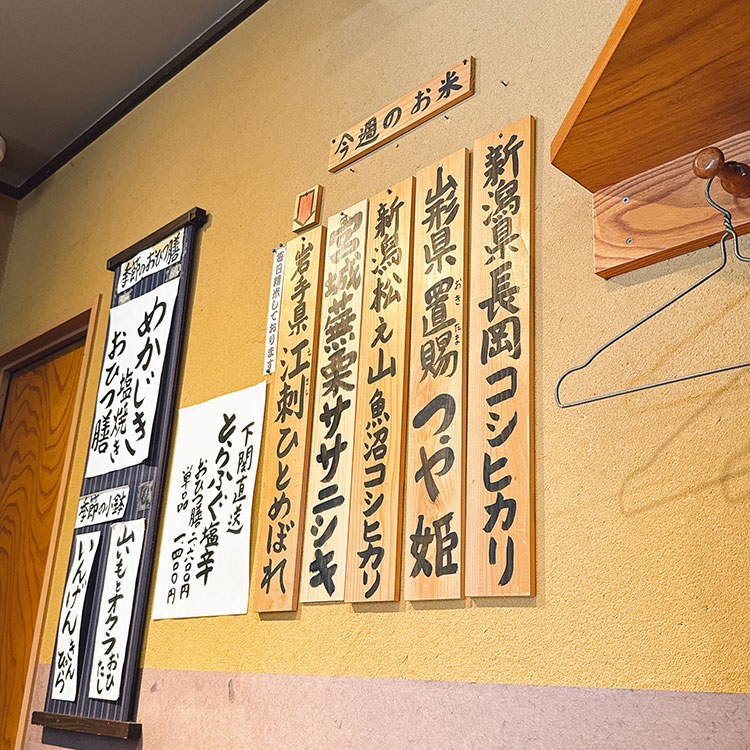 今週のお米
新潟県長岡コシヒカリ
山形県置賜つや姫
おきたま
新潟松之山魚沼コシヒカリ
宮城蕪栗ササニシキ
岩手県江刺ひとめぼれ
えさし
毎日精米しております
下関直送
とらふぐ塩辛
おひつ膳二、六〇〇円
単品一、四〇〇円
季節のおひつ膳
めかじき
塩焼き
おひつ膳
季節の小鉢
山いもとオクラおひたし
いんげんきんぴら